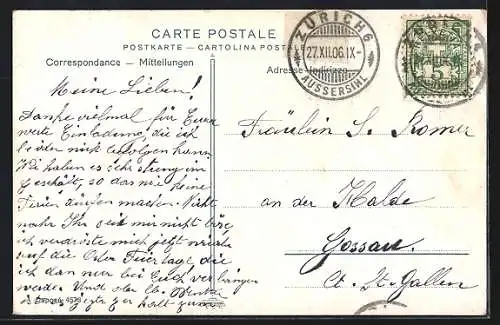 CARTE POSTALE
POSTKARTE — CARTOLINA POSTALE
Correspondance — Mitteilungen
Adresse-Indirizzo
ZÜRICH 6
27.XII.06.IX-
AUSSERSIHL
5
Meine Lieben!
Danke vielmal für Eure
werte Einladung, die ich
leider nicht befolgen kann
Wir haben es sehr streng im
Geschäft, so das wir keine
Ferien dürfen machen. Nicht
wahr Ihr seit mir nicht böse,
ich mich jetzt
auf die Oster Feiertage die
ich dan nur bei Euch
werden. Und
halt
Fräulein S. Romer
an der Halde
Gossau
Ct. St. Gallen